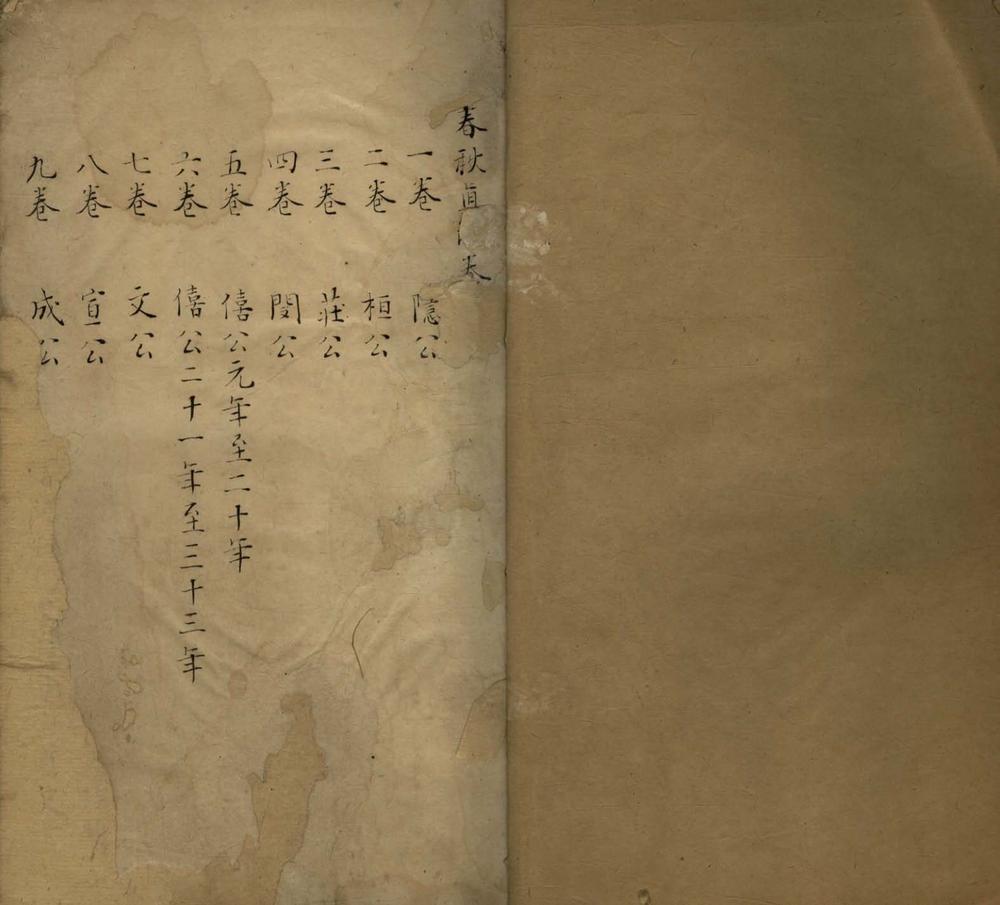 春秋直卷
一卷 隱公
二卷 桓公
三卷 莊公
四卷 閔公
五卷 僖公元年至二十年
六卷 僖公二十一年至三十三年
七卷 文公
八卷 宣公
九卷 成公